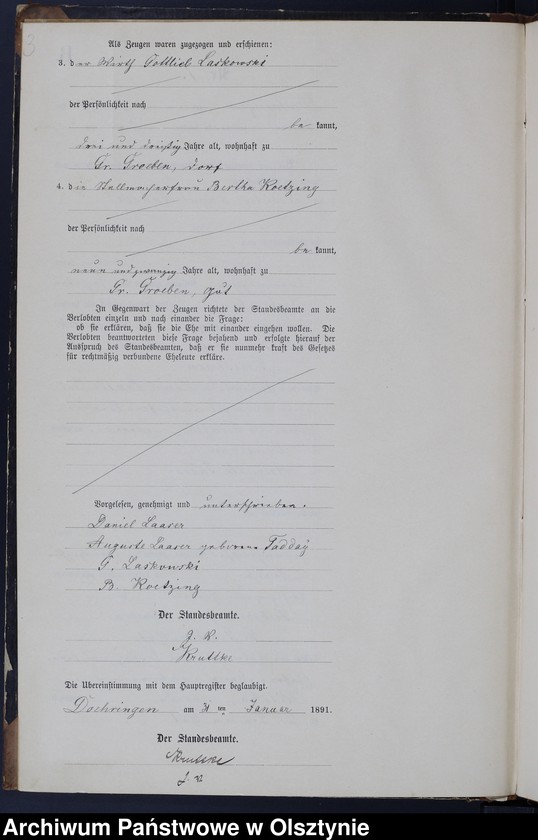 Als Zeugen waren zugezogen und erschienen:
3. der Wirth Gottlieb Laskowski
der Persönlichkeit nach
be kannt,
drei und dreißig Jahre alt, wohnhaft zu
Gr. Groeben, Dorf
4. die Stellmacherfrau Bertha Koetzing
der Persönlichkeit nach
be kannt,
neun und zwanzig Jahre alt, wohnhaft zu
Gr. Groeben, Gut
In Gegenwart der Zeugen richtete der Standesbeamte an die
Verlobten einzeln und nach einander die Frage:
ob sie erklären, daß sie die Ehe mit einander eingehen wollen. Die
Verlobten beantworteten diese Frage bejahend und erfolgte hierauf der
Ausspruch des Standesbeamten, daß er sie nunmehr kraft des Gesetzes
für rechtmäßig verbundene Eheleute erkläre.
Vorgelesen, genehmigt und unterschrieben.
Daniel Laaser
Auguste Laaser geborene Fadday
G. Laskowski
B. Koetzing
Der Standesbeamte.
J. V.
Die Übereinstimmung mit dem Hauptregister beglaubigt.
Doehringen am 31 ten Januar 1891.
Der Standesbeamte.
J. V.
Archiwum Państwowe w Olsztynie